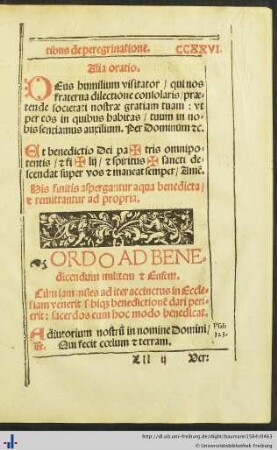 tibus de peregrinatione. CCXXVI.
Alia oratio.
DEus humilium visitator / qui nos
fraterna dilectione consolaris / præ-
tende societati nostræ gratiam tuam : vt
per eos in quibus habitas / tuum in no-
bis sentiamus auxilium. Per Dominum ꝛc.
Et benedictio Dei pa✠tris omnipo-
tentis / ꝛ fi✠lij / ꝛ spiritus✠sancti de-
scendat super vos ꝛ maneat semper / Amē.
His finitis aspergantur aqua benedicta /
ꝛ remittantur ad propria.
ORDO AD BENE
dicendum militem ꝛ Ensem.
ad iter accinctus in Eccle-
siam venerit ꝛ benedictionē dari peti-
erit : sacerdos eum hoc modo benedicat.
Adiutorium nostrū in nomine Domini /
R. Qui fecit cœlum ꝛ terram.
Lll ij Ver:
http://dl.ub.uni-freiburg.de/diglit/baumann1564/0463
© Universitätsbibliothek Freiburg